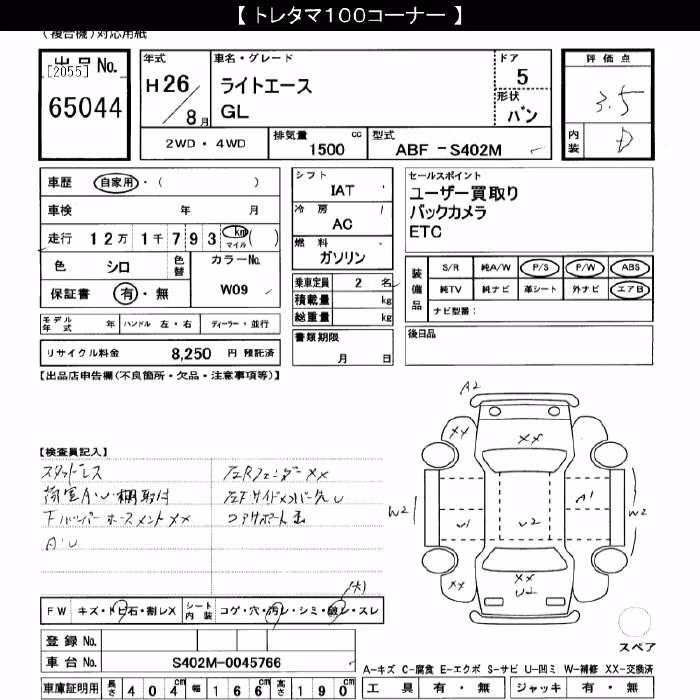 【 トレタマ100コーナー 】
(複合機)対応用紙
出品 No.
[2055]
65044
年式
H26/8月
車名・グレード
ライトエース
GL
ドア
5
形状
バン
評価点
3.5
内装
D
2WD・4WD
排気量 1500 cc
型式 ABF-S402M
車歴 自家用・( )
車検 年 月
走行 12万1千793 km マイル ( )
色 シロ 色替
カラーNo. W09
保証書 有・無
シフト IAT
冷房 AC
燃料 ガソリン
乗車定員 2 名
積載量 kg
総重量 kg
セールスポイント
ユーザー買取り
バックカメラ
ETC
装備品
S/R 純A/W P/S P/W ABS
純TV 純ナビ 革シート 外ナビ エアB
ナビ型番:
モデル年式 年 ハンドル 左・右 ディーラー・並行
書類期限
月 日
後日品
リサイクル料金 8,250 円 預託済
【出品店申告欄(不良箇所・欠品・注意事項等)】
【検査員記入】
スタッドレス
荷室A・U 棚取付
A・U
左Rフェンダー××
コアサポート
A2
××
××
W2
U1
U2
A1
W2
××
××
U2
××
FW キズ・トビ石・割レX シート内装 コゲ・穴・汚レ・シミ・破レ・スレ
(大)
登録 No.
車台 No. S402M-0045766
スペア
A-キズ C-腐食 E-エクボ S-サビ U-凹ミ W-補修 XX-交換済
車庫証明用 長さ 404cm 幅 166cm 高さ 190cm
工具 有・無 ジャッキ 有・無